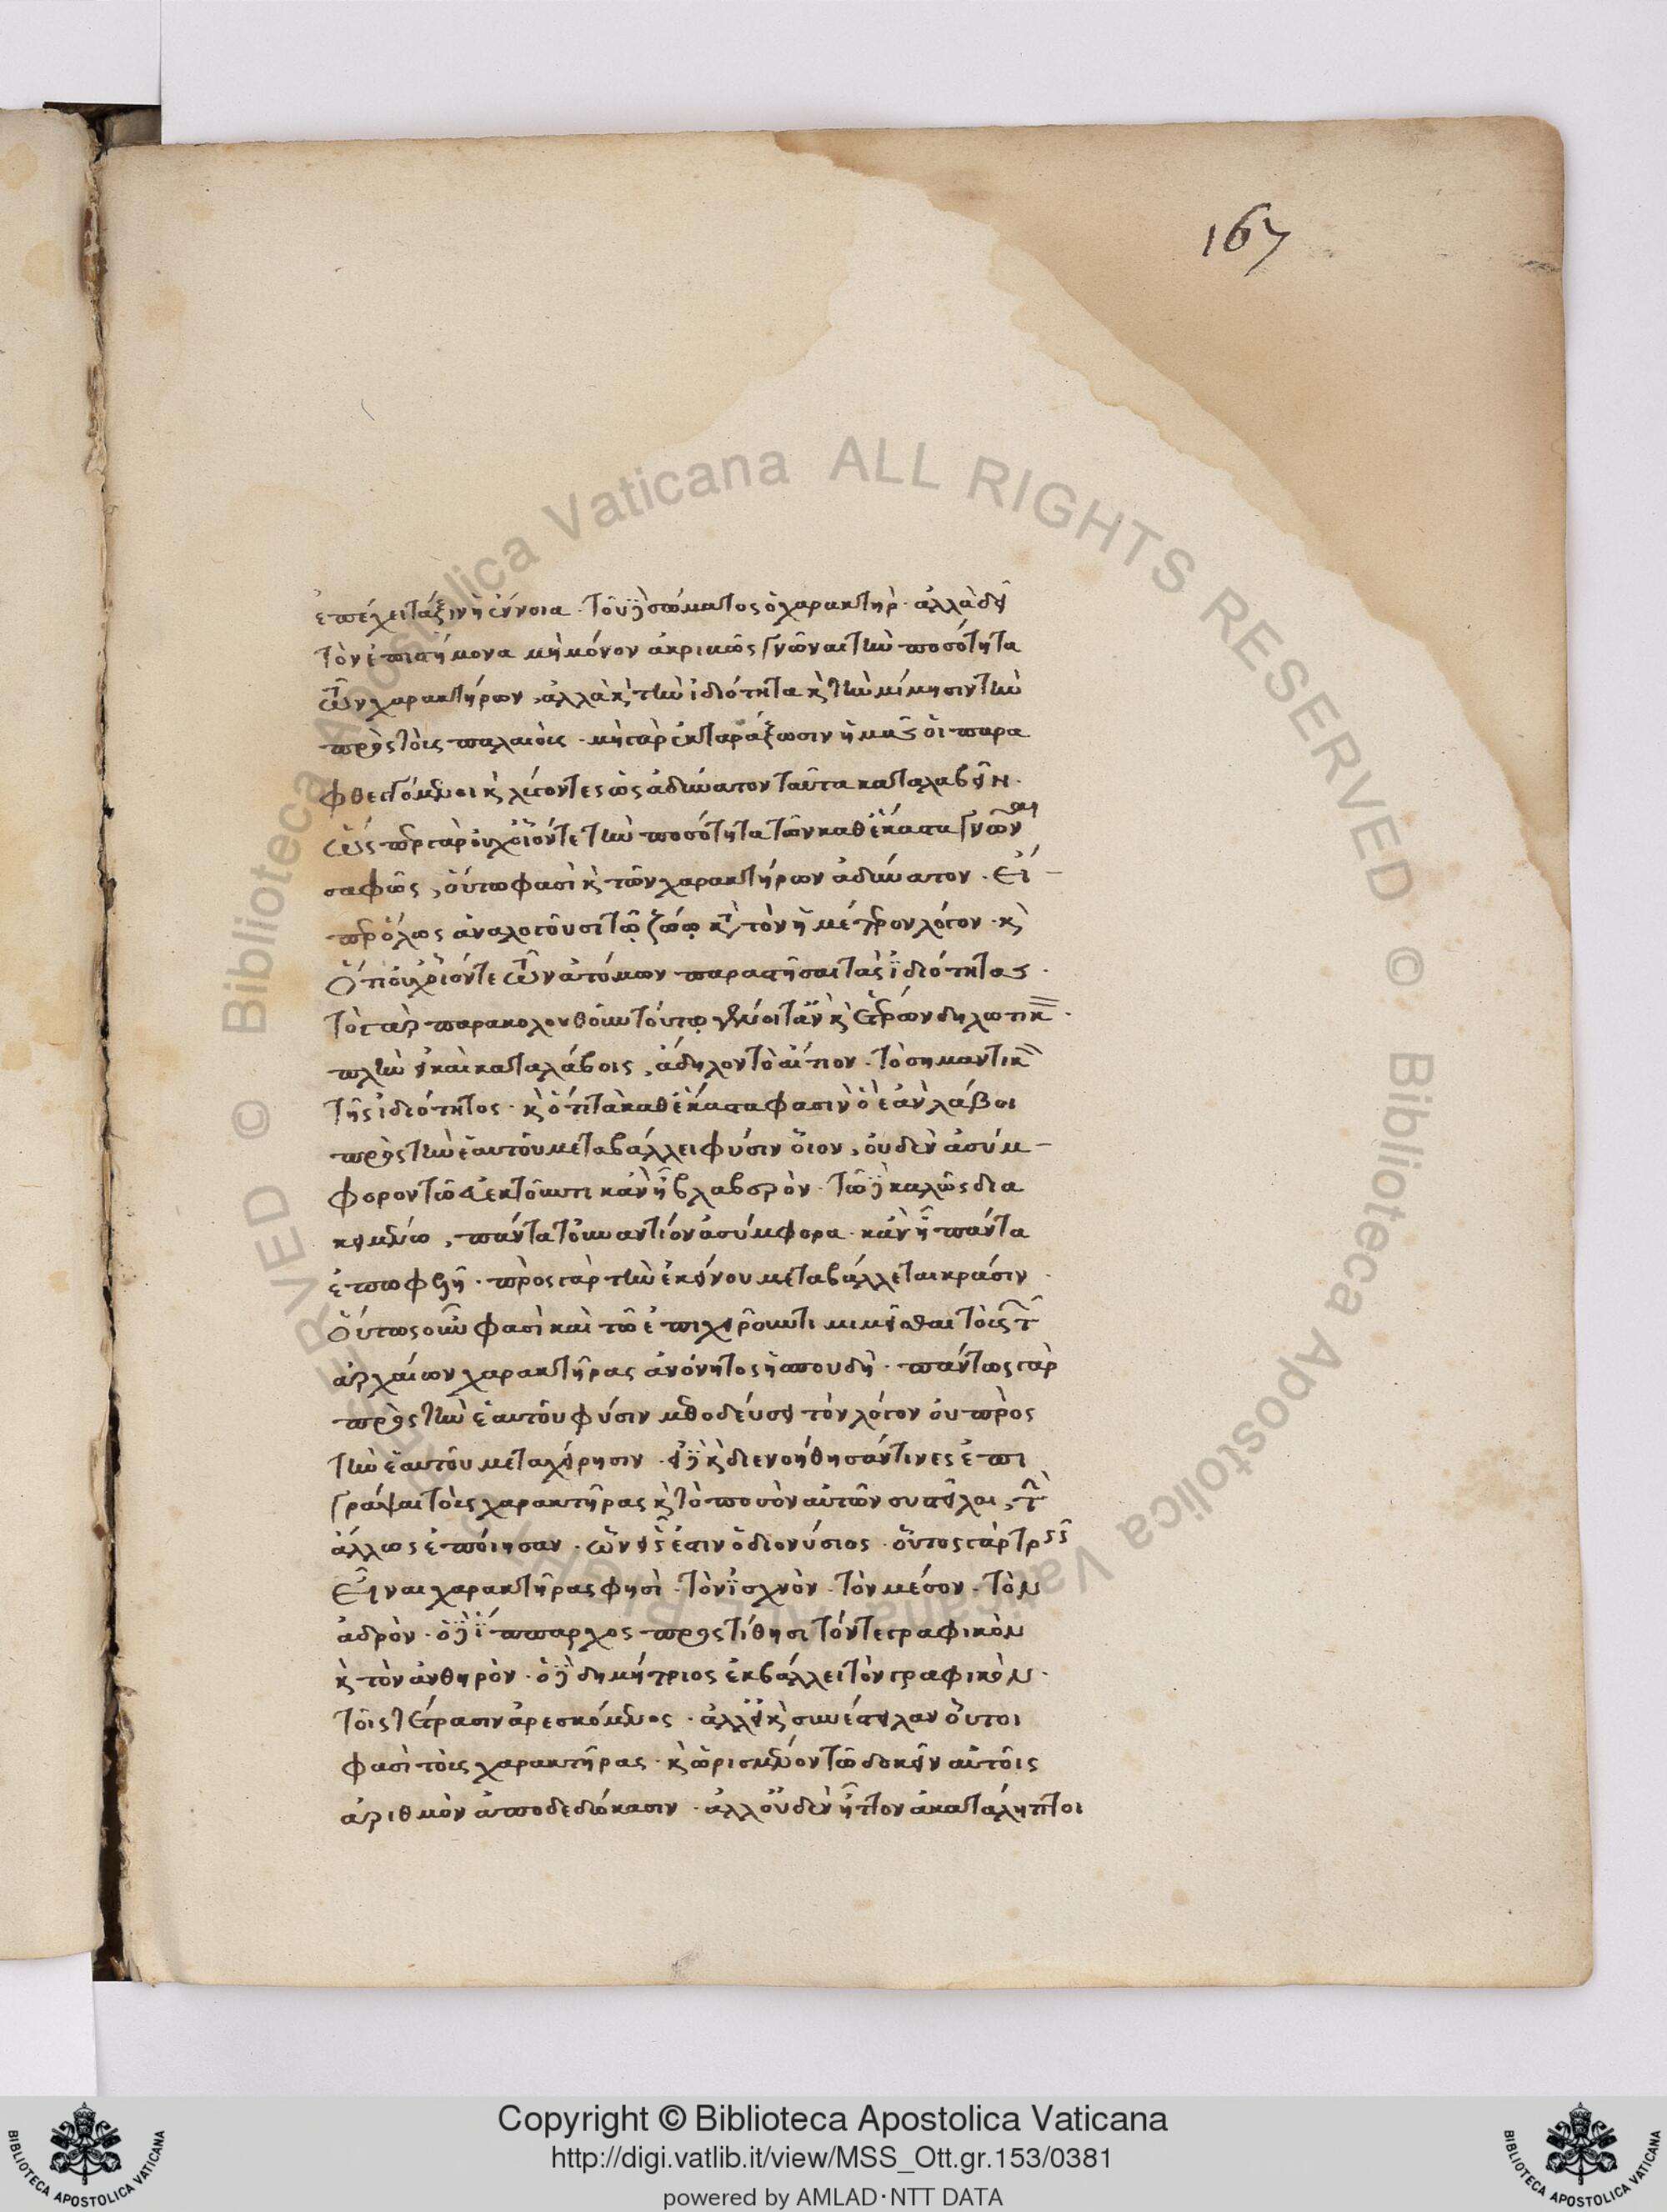 167
ἐπέχει τάξιν ἡ ἔννοια. τοῦ δὲ σώματος ὁ χαρακτήρ. ἀλλὰ δεῖ
τὸν ἐπιστήμονα μὴ μόνον ἀκριβῶς γνῶναι τὴν ποσότητα
τῶν χαρακτήρων, ἀλλὰ καὶ τὴν ἰδιότητα καὶ τὴν μίμησιν τὴν
πρὸς τοὺς παλαιοὺς. μὴ γὰρ ἐκταράξωσιν ἡμᾶς οἱ παρα
φθεγγόμενοι καὶ λέγοντες ὡς ἀδύνατον ταῦτα καταλαβεῖν.
ὥσπερ γὰρ οὐχ οἷόν τε τὴν ποσότητα τῶν καθ ἕκαστα γνῶναι
σαφῶς, οὕτω φασὶ καὶ τῶν χαρακτήρων ἀδύνατον. εἴ-
περ ὅλως ἀναλογοῦσι τῷ ζώῳ κατὰ τὸν ἡμέτερον λόγον. καὶ
ὅτι οὐχ οἷόν τε τῶν ἀτόμων παραστῆσαι τὰς ἰδιότητας.
τὸ γὰρ παρακολουθοῦν τούτῳ γένοιτ ἂν καὶ ἑτέρων δηλωτικ.
πλὴν εἰ καὶ καταλάβοις, ἄδηλον τὸ αἴτιον. τὸ σημαντικ
τῆς ἰδιότητος. καὶ ὅτι τὰ καθ ἕκαστα φασὶν ὃ ἐὰν λάβοι
πρὸς τὴν ἑαυτοῦ μεταβάλλει φύσιν οἷον, οὐδὲν ἀσύμ-
φορον τῷ εὐεκτοῦντι κἂν ᾖ βλαβερὸν. τῷ δὲ καλῶς δια
κειμένῳ, πάντα τοὐναντίον ἀσύμφορα. κἂν ᾖ πάντα
ἐπωφελῆ. πρὸς γὰρ τὴν ἐκείνου μεταβάλλεται κρᾶσιν.
οὕτως οὖν φασὶ καὶ τῷ ἐπιχειροῦντι μιμεῖσθαι τοὺς τῶν
ἀρχαίων χαρακτῆρας ἀνόνητος ἡ σπουδὴ. πάντως γὰρ
πρὸς τὴν ἑαυτοῦ φύσιν μεθοδεύσει τὸν λόγον οὐ πρὸς
τὴν ἑαυτοῦ μεταχείρησιν. εἰ δὲ καὶ διενοήθησάν τινες ἐπι
γράψαι τοὺς χαρακτῆρας καὶ τὸ ποσὸν αὐτῶν συστεῖλαι,
ἄλλως ἐποίησαν. ὧν εἷς ἐστιν ὁ διονύσιος. οὗτος γὰρ τρεῖς
εἶναι χαρακτῆρας φησὶ. τὸν ἰσχνὸν. τὸν μέσον. τὸν
ἁδρὸν. ὁ δὲ ἵππαρχος προστίθησι τόν τε γραφικὸν
καὶ τὸν ἀνθηρὸν. ὁ δὲ δημήτριος ἐκβάλλει τὸν γραφικὸν.
τοῖς τέτρασιν ἀρεσκόμενος. ἀλλ εἰ καὶ συνέστειλαν οὗτοι
φασὶ τοὺς χαρακτῆρας. καὶ ὡρισμένον τῷ δοκεῖν αὐτοῖς
ἀριθμὸν ἀποδεδώκασιν. ἀλλ οὐδὲν ἧττον ἀκατάληπτοι
Copyright © Biblioteca Apostolica Vaticana
http://digi.vatlib.it/view/MSS_Ott.gr.153/0381
powered by AMLAD·NTT DATA